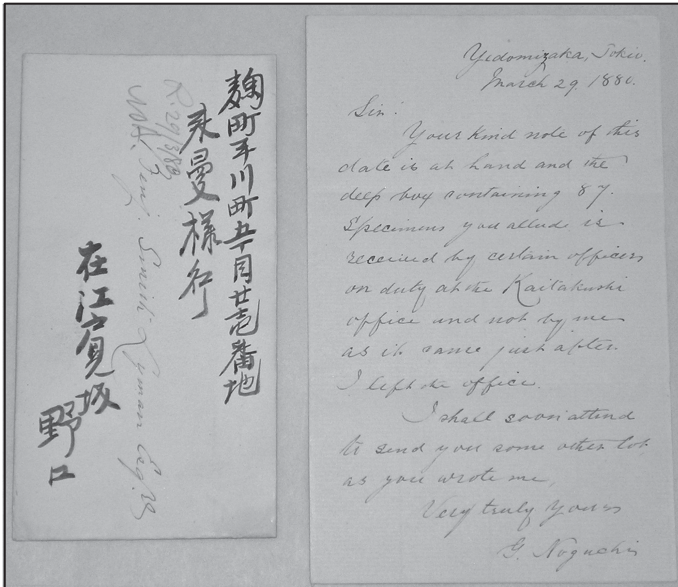 麹町平川町五丁目廿壱番地
来曼様行
R. 29/3/80
Benj. Smith Lyman Esq.
在江戸見坂
野口
Yedomizaka, Tokio.
March 29, 1880.
Sir:
Your kind note of this
date is at hand and the
deep box containing 87.
Specimens you allude is
received by certain officers
on duty at the Kaitakushi
office and not by me
as it came just after
I left the office.
I shall soon attend
to send you some other lot
as you wrote me,
Very truly Yours
G. Noguchi